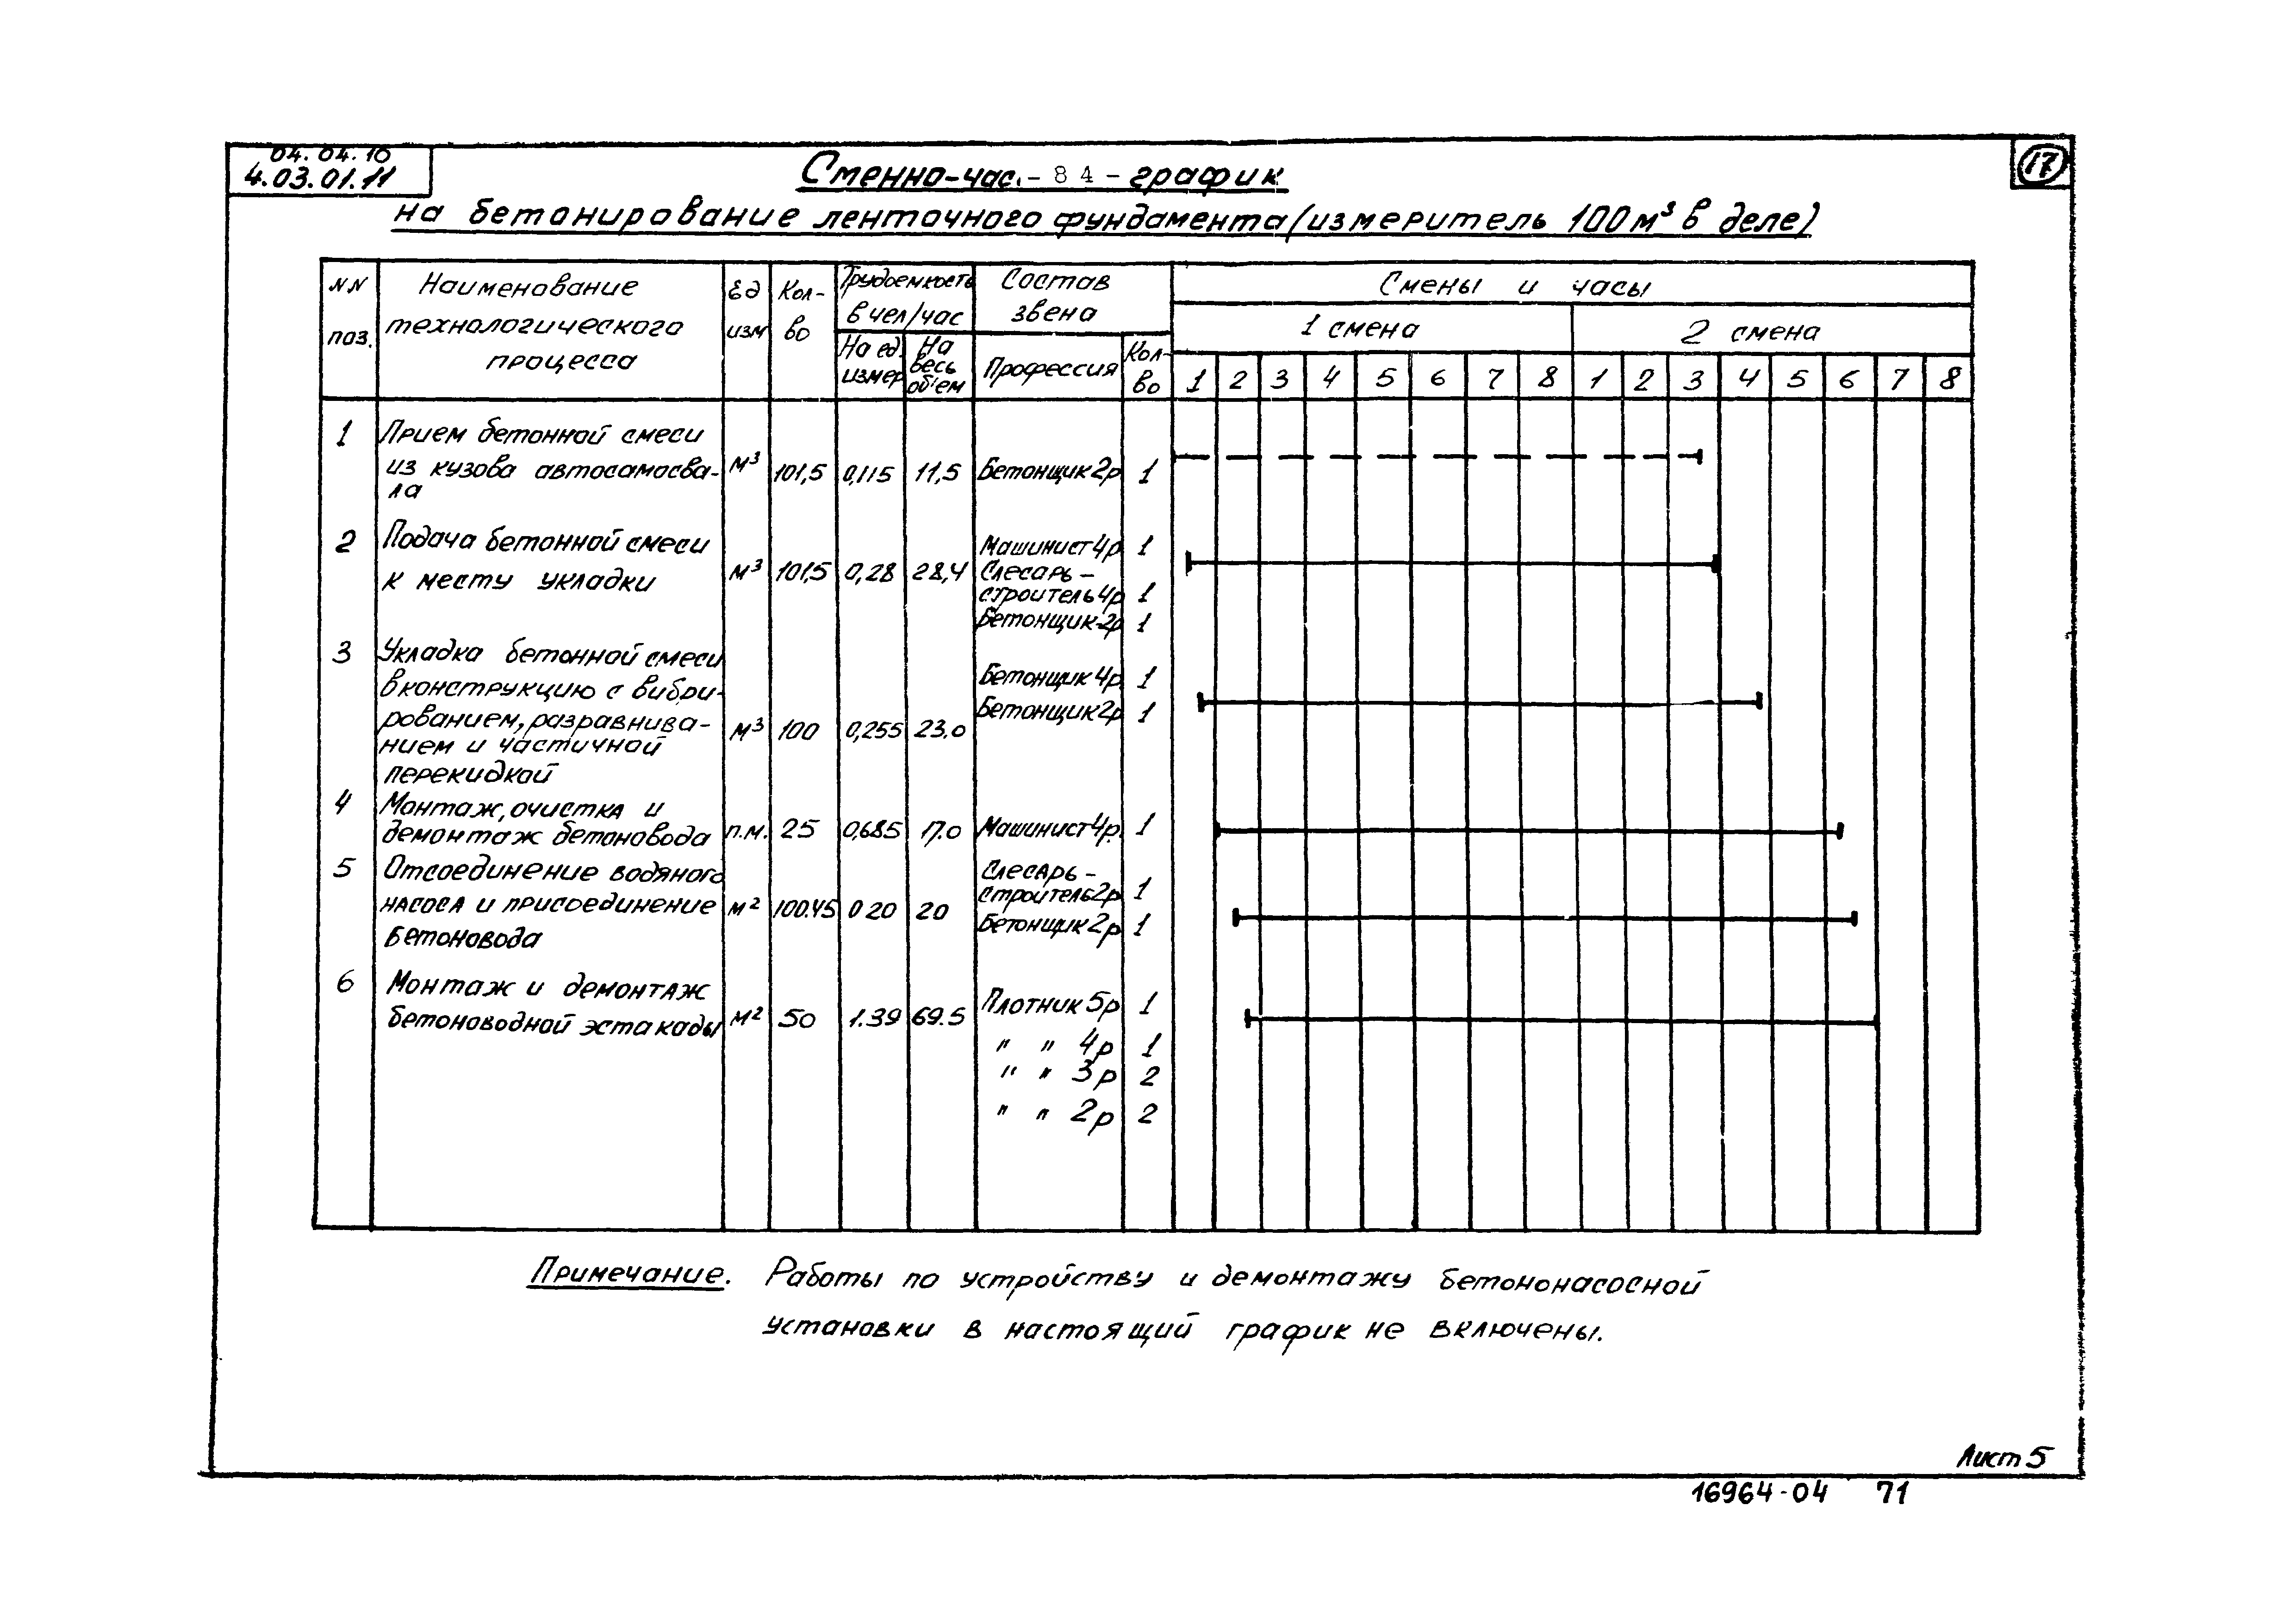 04.04.10
4.03.01.11
17
Сменно-час. - 84 - график
на бетонирование ленточного фундамента (измеритель 100 м³ в деле)
NN поз.
Наименование технологического процесса
Ед изм
Кол-во
Трудоемкость в чел/час
На ед. измер
На весь об'ем
Состав звена
Профессия
Кол-во
Смены и часы
1 смена
2 смена
1 2 3 4 5 6 7 8 1 2 3 4 5 6 7 8
1 Прием бетонной смеси
из кузова автосамосва- м³ 101,5 0,115 11,5 Бетонщик 2р 1
ла
2 Подача бетонной смеси
к месту укладки м³ 101,5 0,28 28,4
Машинист 4р 1
Слесарь-
строитель 4р 1
Бетонщик-2р 1
3 Укладка бетонной смеси
в конструкцию с вибри-
рованием, разравнива- м³ 100 0,255 23.0
нием и частичной
перекидкой
Бетонщик 4р. 1
Бетонщик 2р 1
4 Монтаж, очистка и
демонтаж бетоновода п.м. 25 0,685 17.0 Машинист 4р. 1
5 Отсоединение водяного
насоса и присоединение м² 100.45 0 20 20
бетоновода
Слесарь-
строитель 2р 1
Бетонщик 2р 1
6 Монтаж и демонтаж
бетоноводной эстакады м² 50 1.39 69.5
Плотник 5р 1
" " 4р 1
" " 3р 2
" " 2р 2
Примечание. Работы по устройству и демонтажу бетононасосной
установки в настоящий график не включены.
Лист 5
16964-04 71